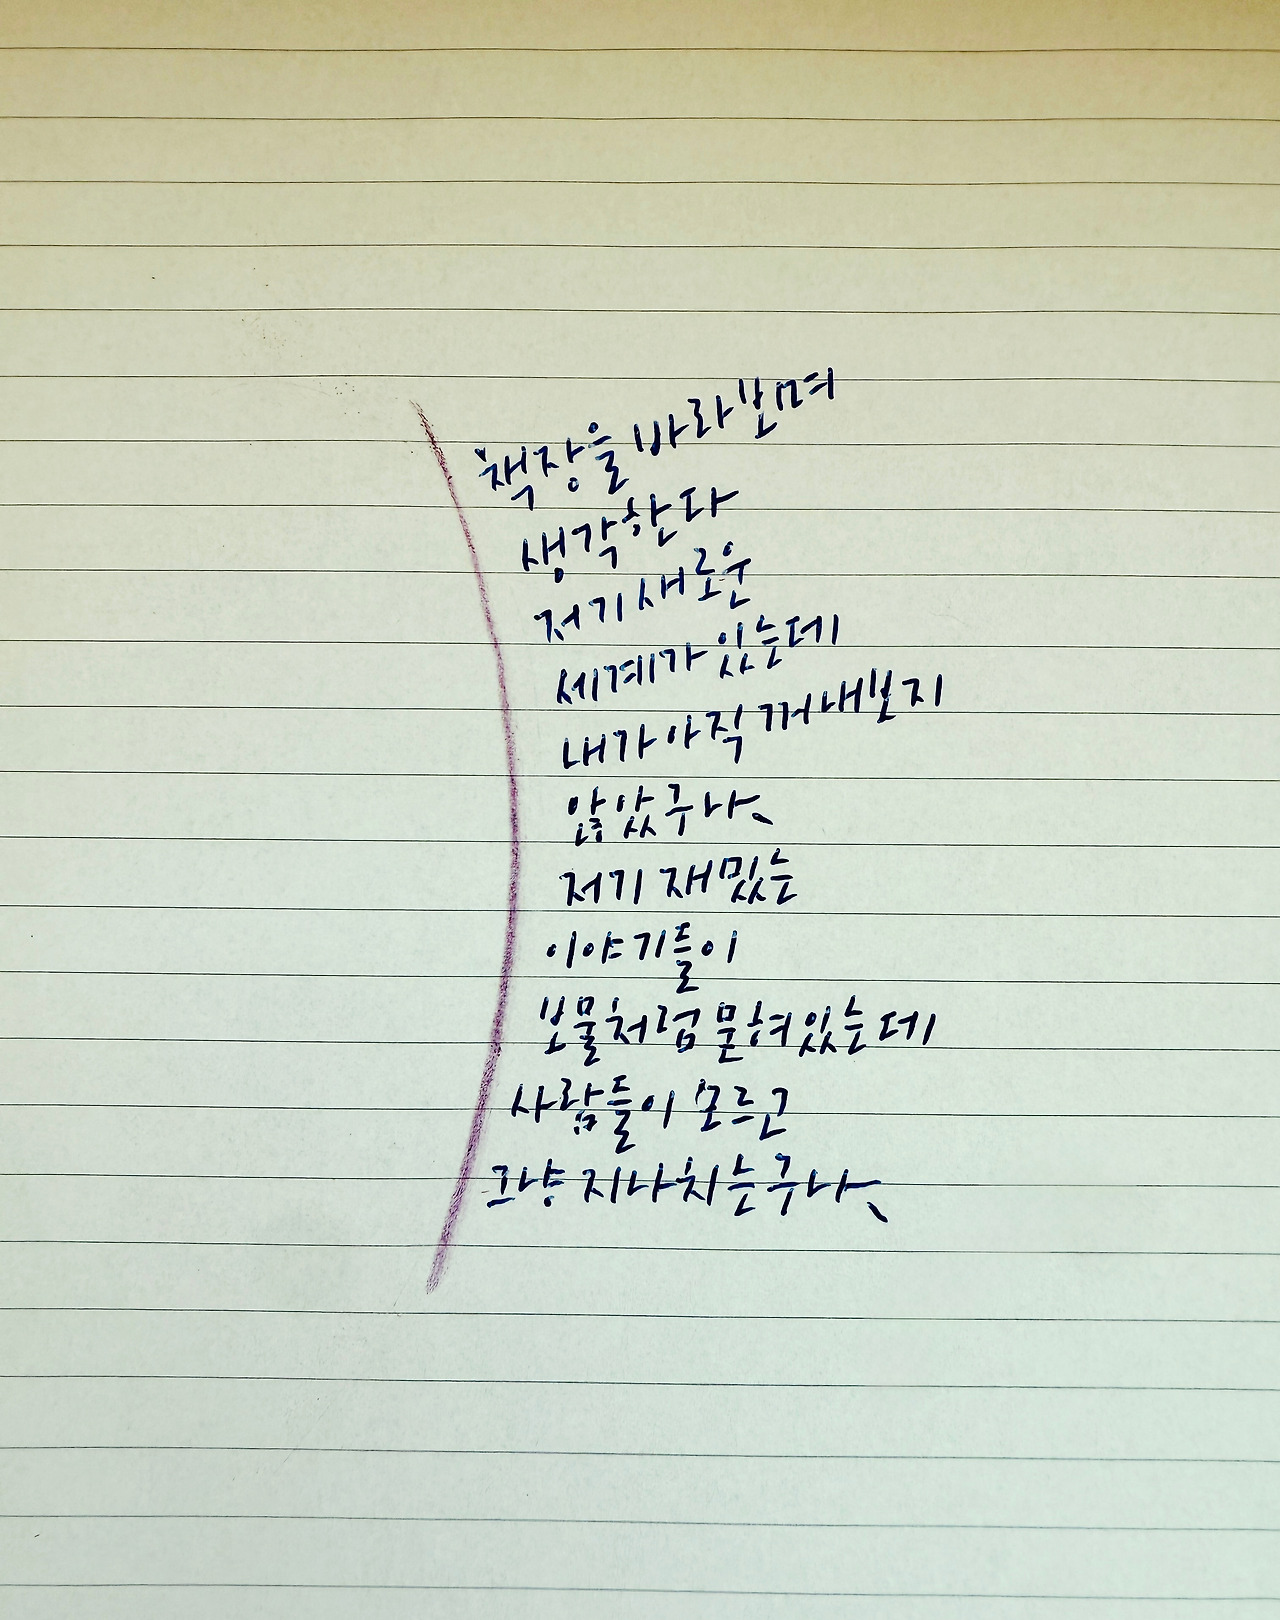 책장을 바라보며
생각한다
저기 새로운
세계가 있는데
내가 아직 꺼내보지
않았구나、
저기 재밌는
이야기들이
보물처럼 묻혀있는데
사람들이 모르고
그냥 지나치는구나、